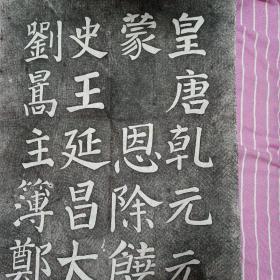 皇唐乾元元
蒙 恩除饒
史王延昌大
劉暠主簿鄭